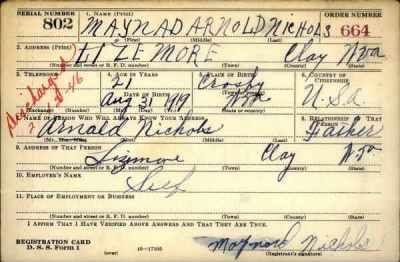 SERIAL NUMBER 1. NAME (Print) ORDER NUMBER
802 MAYNAD ARNOLD NICHOLS 664
(First) (Middle) (Last)
2. ADDRESS (Print)
SIZEMORE Clay W Va
(Number and street or R. F. D. number) (Town) (County) (State)
3. TELEPHONE 4. AGE IN YEARS 5. PLACE OF BIRTH 6. COUNTRY OF CITIZENSHIP
21 Crosby
DATE OF BIRTH
Aug 31 1919 W Va U.S.A
(Exchange) (No.) (Mo.) (Day) (Yr.) (State or country)
Discharged
7. NAME OF PERSON WHO WILL ALWAYS KNOW YOUR ADDRESS 8. RELATIONSHIP OF THAT PERSON
Arnald Nichols Father
(Mr., Mrs., Miss) (First) (Middle) (Last)
9. ADDRESS OF THAT PERSON
Sizemore Clay W Va
(Number and street or R. F. D. number) (Town) (County) (State)
10. EMPLOYER'S NAME
Self
11. PLACE OF EMPLOYMENT OR BUSINESS
(Number and street or R. F. D. number) (Town) (County) (State)
I AFFIRM THAT I HAVE VERIFIED ABOVE ANSWERS AND THAT THEY ARE TRUE.
REGISTRATION CARD
D. S. S. Form 1 (over) Maynard Nichols
(Registrant's signature)